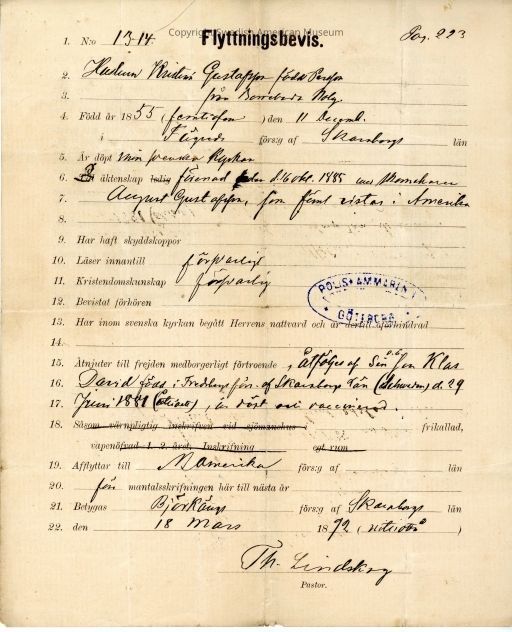 Copyright Swedish American Museum
Flyttningsbevis.
Pag. 223
1. N:o 1314.
2. Hustrun Kristin Gustafsson född Persson
3. från
4. Född år 1855 (femtiofem) den 11 Decemb.
i förs:g af Skaraborgs län
5. Är döpt inom svenska kyrkan
6. äktenskap ledig förenad d. 16 okt. 1885 med
7. August Gustafsson, som rent vistas i Amerika
8.
9. Har haft skyddskoppor
10. Läser innantill försvarligt
11. Kristendomskunskap försvarlig
POLISKAMMAREN I
GÖTEBORG
12. Bevistat förhören
13. Har inom svenska kyrkan begått Herrens nattvard och är dertill oförhindrad
14.
15. Åtnjuter till frejden medborgerligt förtroende, Åtföljes af Sin son Klas
16. David född i Fredbergs förs. af Skaraborgs län d. 29
17. Juni 1881 är döpt och vaccinerad.
18. Såsom värnpligtig inskrifven vid sjömanshus i frikallad,
vapenöfvad 1. 2. året. Inskrifning egt rum
19. Afflyttar till N. Amerika förs:g af län
20. för mantalsskrifningen här till nästa år
21. Betygas Björkäng förs:g af Skaraborgs län
22. den 18 Mars 1892
Th. Lindskog
Pastor.